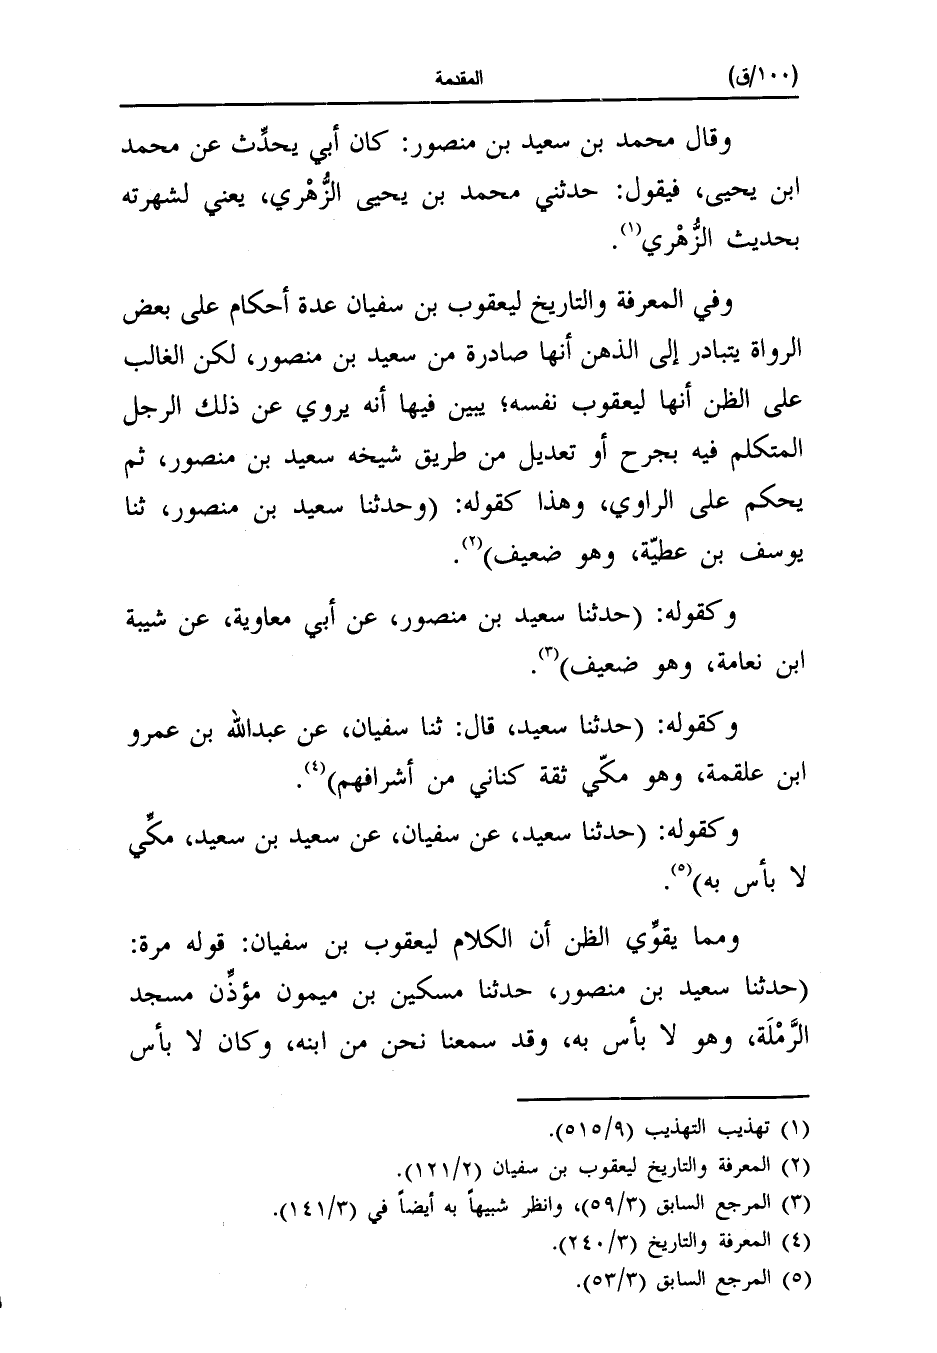 (١٠٠/ق) المقدمة
وقال محمد بن سعيد بن منصور: كان أبي يحدِّث عن محمد
ابن يحيى، فيقول: حدثني محمد بن يحيى الزُّهْري، يعني لشهرته
بحديث الزُّهْري(١).
وفي المعرفة والتاريخ ليعقوب بن سفيان عدة أحكام على بعض
الرواة يتبادر إلى الذهن أنها صادرة من سعيد بن منصور، لكن الغالب
على الظن أنها ليعقوب نفسه؛ يبين فيها أنه يروي عن ذلك الرجل
المتكلم فيه بجرح أو تعديل من طريق شيخه سعيد بن منصور، ثم
يحكم على الراوي، وهذا كقوله: (وحدثنا سعيد بن منصور، ثنا
يوسف بن عطيّة، وهو ضعيف)(٢).
وكقوله: (حدثنا سعيد بن منصور، عن أبي معاوية، عن شيبة
ابن نعامة، وهو ضعيف)(٣).
وكقوله: (حدثنا سعيد، قال: ثنا سفيان، عن عبدالله بن عمرو
ابن علقمة، وهو مكّي ثقة كناني من أشرافهم)(٤).
وكقوله: (حدثنا سعيد، عن سفيان، عن سعيد بن سعيد، مكِّي
لا بأس به)(٥).
ومما يقوِّي الظن أن الكلام ليعقوب بن سفيان: قوله مرة:
(حدثنا سعيد بن منصور، حدثنا مسكين بن ميمون مؤذِّن مسجد
الرَّمْلَة، وهو لا بأس به، وقد سمعنا نحن من ابنه، وكان لا بأس
(١) تهذيب التهذيب (٥١٥/٩).
(٢) المعرفة والتاريخ ليعقوب بن سفيان (١٢١/٢).
(٣) المرجع السابق (٥٩/٣)، وانظر شبيهاً به أيضاً في (١٤١/٣).
(٤) المعرفة والتاريخ (٢٤٠/٣).
(٥) المرجع السابق (٥٣/٣).